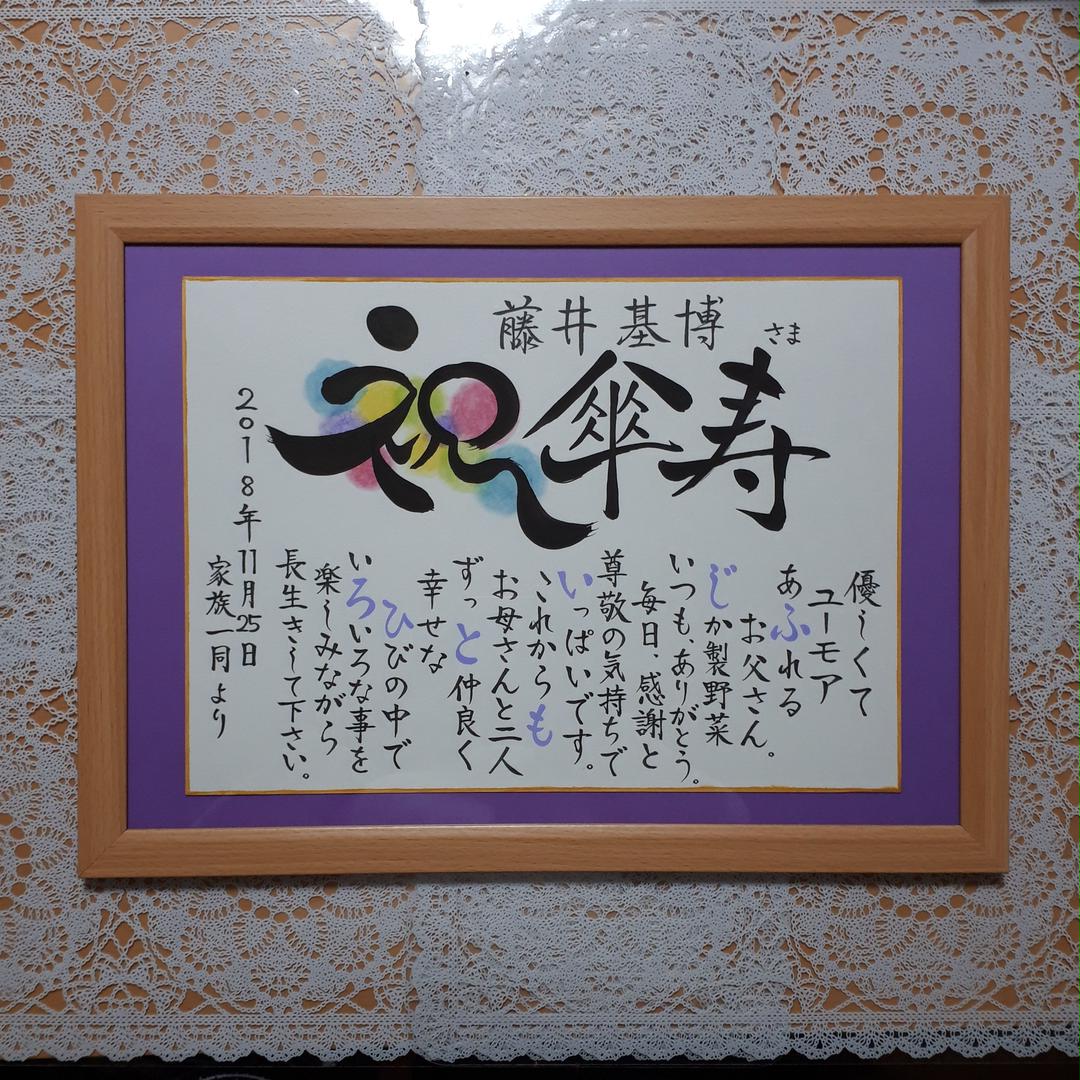 藤井基博 さま
祝傘寿
優しくて
ユーモア
あふれる
お父さん。
じか製野菜
いつも、ありがとう。
毎日、感謝と
尊敬の気持ちで
いっぱいです。
これからも
お母さんと二人
ずっと仲良く
幸せな
ひびの中で
いろいろな事を
楽しみながら
長生きして下さい。
2018年11月25日
家族一同より